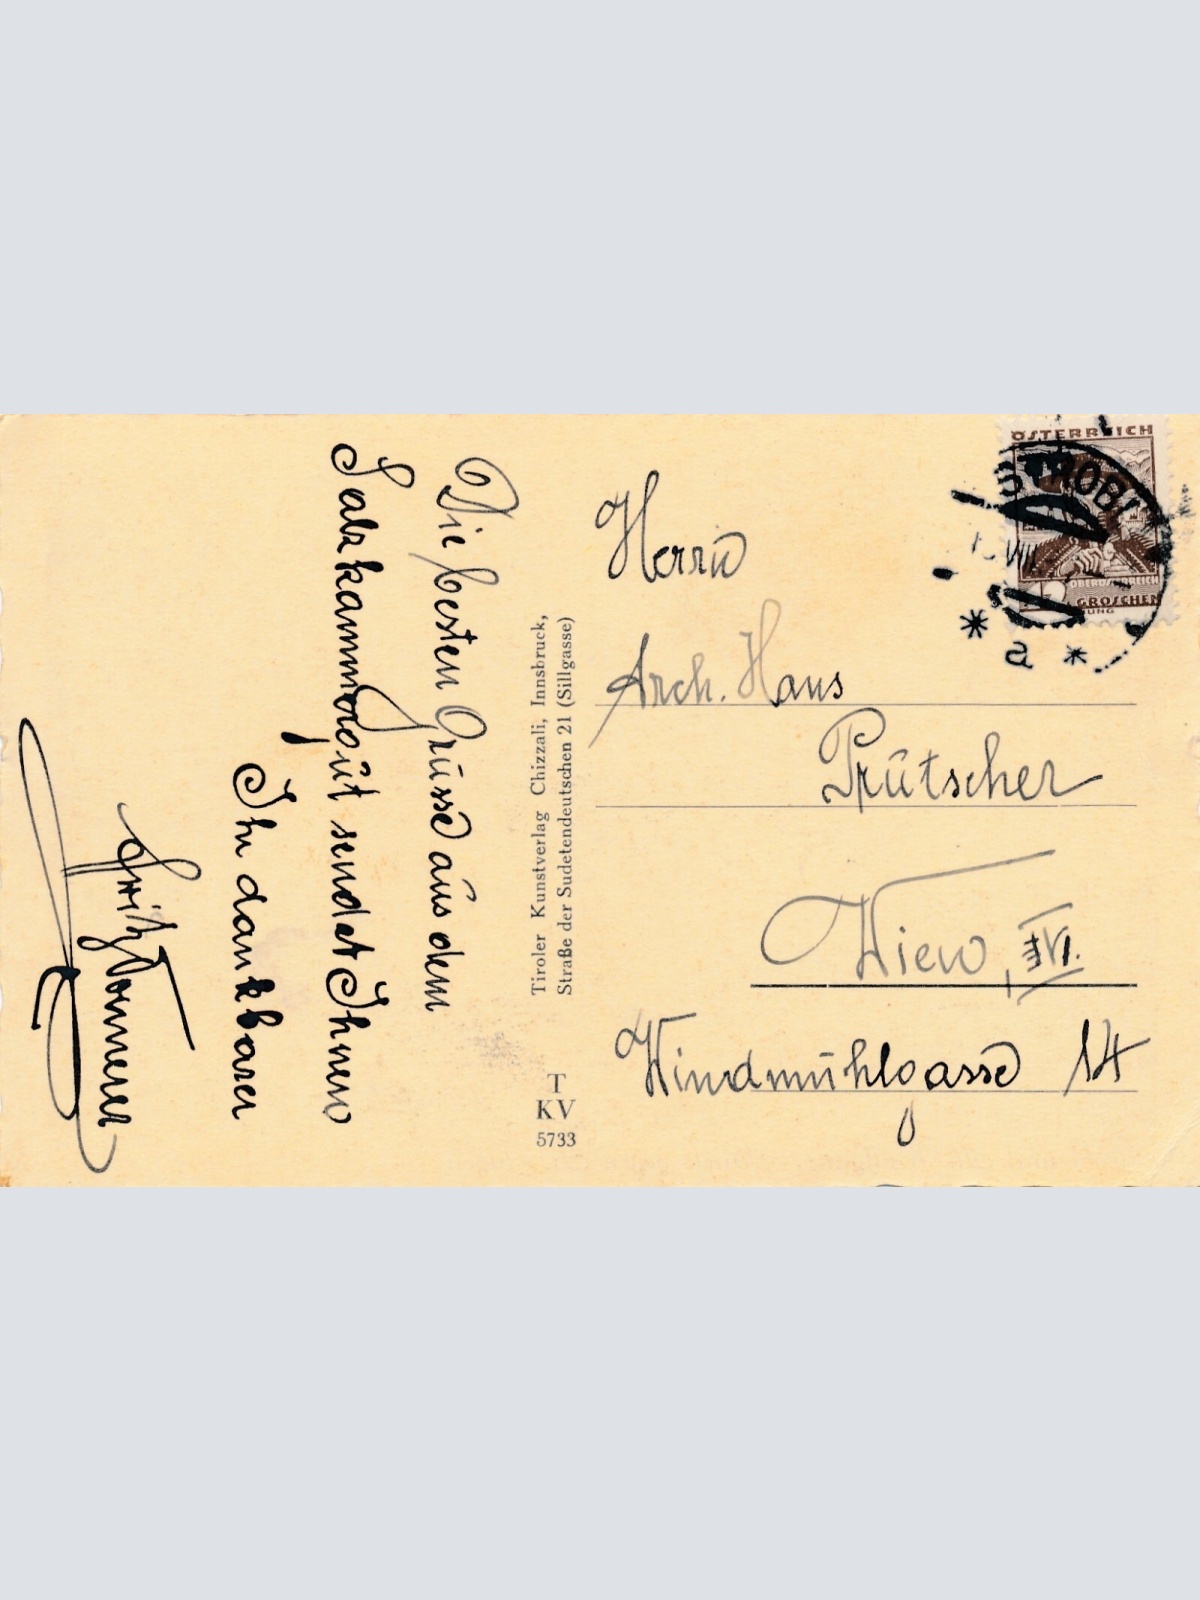 Die besten Grüsse aus dem
Salzkammergut sendet Ihnen
Ihr dankbarer
Fritz
Tiroler Kunstverlag Chizzali, Innsbruck,
Straße der Sudetendeutschen 21 (Sillgasse)
T
KV
5733
ÖSTERREICH
STROBL
VIII
OBERÖSTERREICH
GROSCHEN
a
Herrn
Arch. Hans
Prutscher
Wien, VI.
Windmühlgasse 14